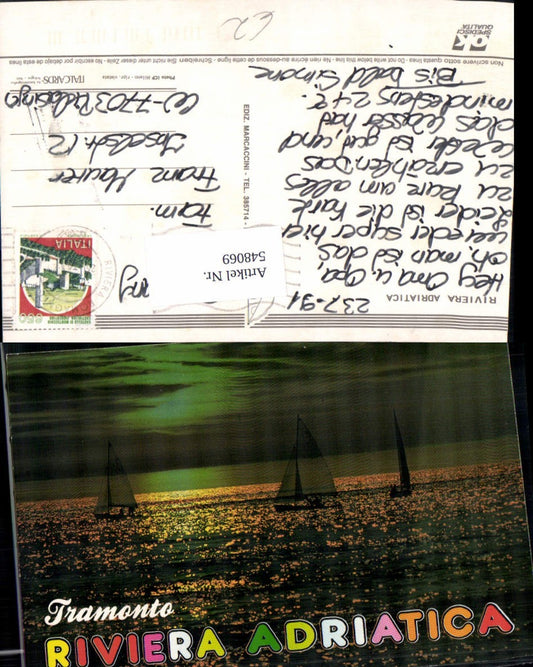 RIVIERA ADRIATICA
23.7.91
Hey Oma u. Opa,
oh, man ist das
wieder super hier
Leider ist die Karte
zu klein um alles
zu erzählen. Das
Wetter ist gut, und
das Wasser hat
mindestens 24°C.
Bis bald Simone
EDIZ. MARCACCINI - TEL. 385714 -
Fam.
Franz Maurer
Inselstr. 12
W-7703 Rielasingen
ITALIA
650
RIVIERA
Artikel Nr.
548069
ITALCARDS
Non scrivere sotto questa linea - Do not write below this line - Ne rien écrire au-dessous de cette ligne - Schreiben Sie nicht unter dieser Zeile - No escribir por debajo de esta línea
SPEDISCI
QUALITÀ
Tramonto
RIVIERA ADRIATICA